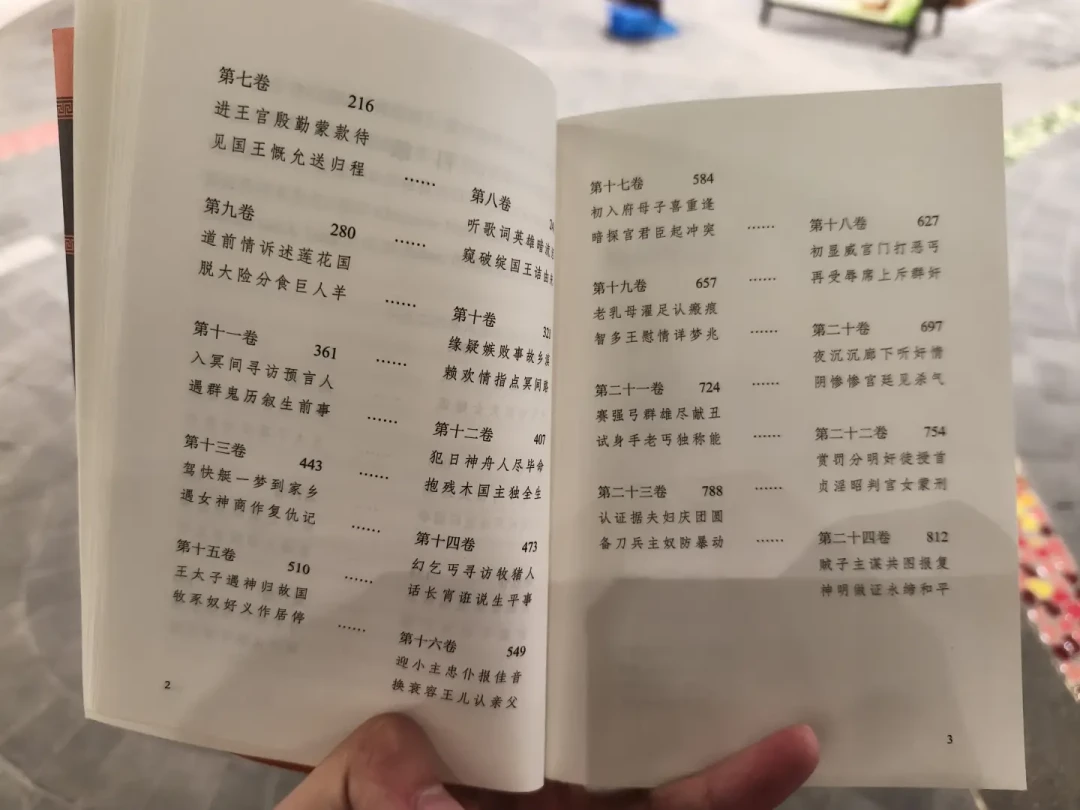 第七卷 216
进王宫殷勤蒙款待
见国王慨允送归程
……
第八卷
听歌词英雄暗流
窥破绽国王诘由
……
第九卷 280
道前情诉述莲花国
脱大险分食巨人羊
……
第十卷
缘疑嫉败事故乡
赖欢情指点冥间路
……
第十一卷 361
入冥间寻访预言人
遇群鬼历叙生前事
……
第十二卷 407
犯日神舟人尽毕命
抱残木国主独全生
……
第十三卷 443
驾快艇一梦到家乡
遇女神商作复仇记
……
第十四卷 473
幻乞丐寻访牧猪人
话长宵诳说生平事
……
第十五卷 510
王太子遇神归故国
牧豕奴好义作居停
……
第十六卷 549
迎小主忠仆报佳音
换衰容王儿认亲父
2
第十七卷 584
初入府母子喜重逢
暗探宫君臣起冲突
……
第十八卷 627
初显威宫门打恶丐
再受辱席上斥群奸
……
第十九卷 657
老乳母濯足认瘢痕
智多王慰情详梦兆
……
第二十卷 697
夜沉沉廊下听奸情
阴惨惨宫廷见杀气
……
第二十一卷 724
赛强弓群雄尽献丑
试身手老丐独称能
……
第二十二卷 754
赏罚分明奸徒授首
贞淫昭判宫女蒙刑
……
第二十三卷 788
认证据夫妇庆团圆
备刀兵主奴防暴动
……
第二十四卷 812
贼子主谋共图报复
神明做证永缔和平
3